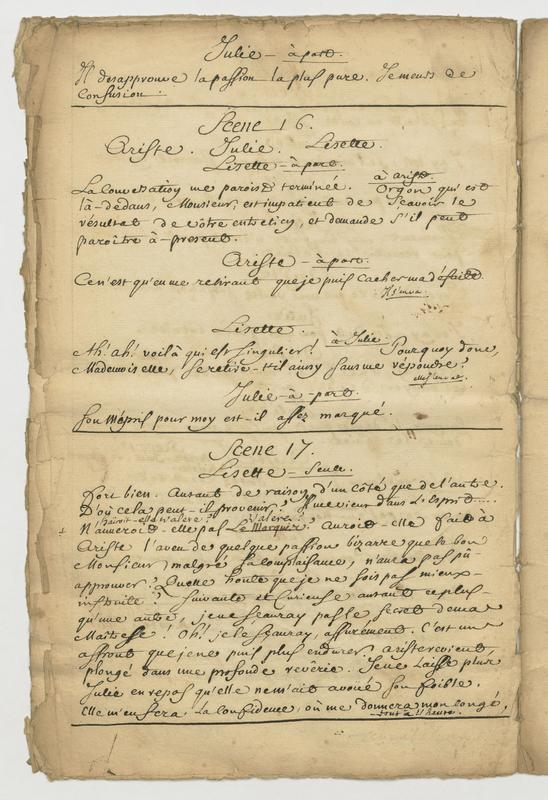 Julie - à part.
Il desapprouve la passion la plus pure. Je meurs de
Confusion.
Scene 16.
Ariste. Julie. Lisette.
Lisette - à part.
La Conversation me paroist terminée. à Ariste. Orgon qui est
là-dedans, Monsieur, est impatient de sçavoir le
résultat de vôtre entretien, et demande s'il peut
paroître à-present.
Ariste - à part.
Ce n'est qu'en me retirant que je puis cacher ma défaite.
Il s'en va.
Lisette.
Ah! ah! voilà qui est singulier! à Julie Pourquoy donc,
Mademoiselle, se retire-t-il ainsy sans me répondre?
Julie - à - part.
Son Mépris pour moy est-il assez marqué.
Scene 17.
Lisette - Seule.
Fort bien. Autant de raison d'un côté que de l'autre.
D'où cela peut-il provenir? Il me vient dans l'Esprit....
N'aimeroit-elle pas Le Marquis? Auroit-elle fait à
Valere?
Ariste l'aveu de quelque passion bizarre que le bon
Monsieur, malgré sa complaisance, n'aura pas pû
approuver? Quelle honte que je ne sois pas mieux
instruite! Suivante et Curieuse autant et plus
qu'une autre, je ne sçauray pas le secret de ma
Maîtresse! Oh! je le sçauray, assurement. C'est un
affront que je ne puis plus endurer. Ariste revient,
plongé dans une profonde revêrie. Je ne laisse plus
Julie en repos qu'elle ne m'ait avoüé son foible.
Elle m'en fera la Confidence, où me donnera mon congé,